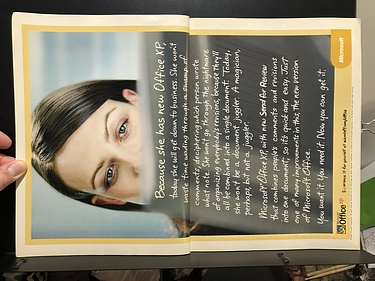 Because she has new Office XP,
today she will get down to business. She won't
waste time wading through a swamp of
comments, deciphering which person wrote
what note. She won't go through the nightmare
of organizing everybody's revisions, because they'll
all be combined into a single document. Today,
she won't be a document juggler. A magician,
perhaps, but not a juggler.
Microsoft Office XP with new Send for Review
that combines people's comments and revisions
into one document, so it's quick and easy. Just
one of many improvements in this, the new version
of Microsoft Office.
You want it. You need it. Now you can get it.
Office xp
Experience it for yourself at
Microsoft